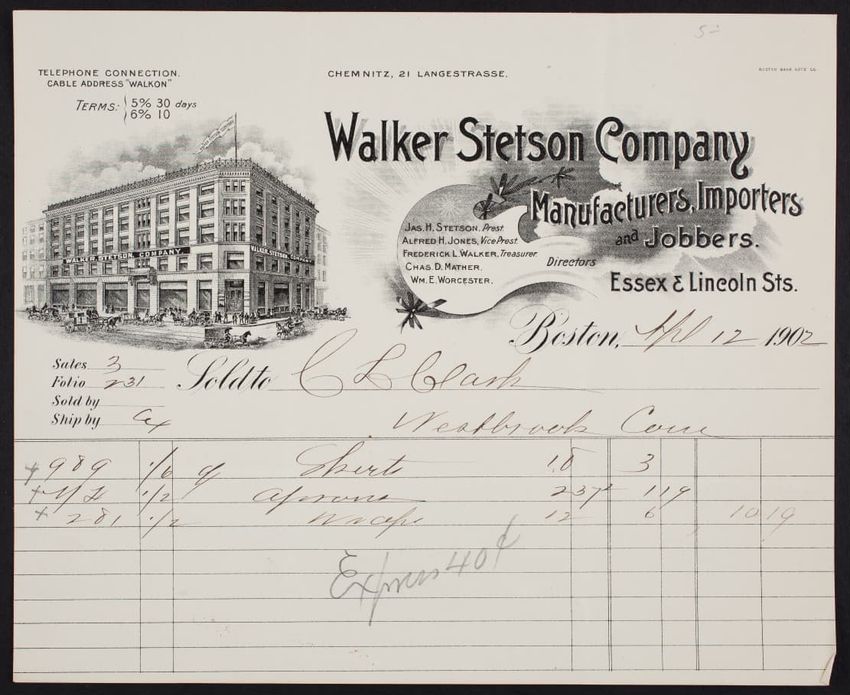 5-
TELEPHONE CONNECTION.
CABLE ADDRESS "WALKON"
TERMS: 5% 30 days
6% 10
CHEMNITZ, 21 LANGESTRASSE.
BOSTON BANK NOTE CO.
Walker Stetson Company
Manufacturers, Importers
and Jobbers.
Essex & Lincoln Sts.
JAS. H. STETSON, Prest.
ALFRED H. JONES, Vice Prest.
FREDERICK L. WALKER, Treasurer.
CHAS. D. MATHER.
WM. E. WORCESTER.
Directors
WALKER, STETSON COMPANY
WALKER, STETSON COMPANY
Boston, Apl 12 1902
Sales 3
Folio 231
Sold by
Ship by Ex
Sold to C L Clark
Westbrook Conn
+ 989 1/6 Skirts 18 3
+ 1/2 Aprons 2 37½ 1 19
+ 281 1/2 12 6 10 19
Express 40¢